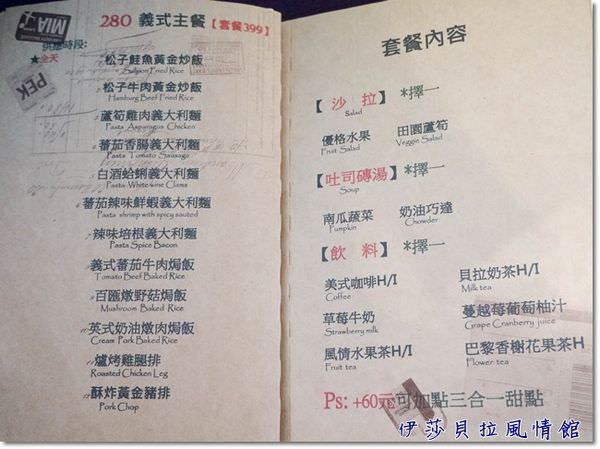 280 義式主餐【套餐399】
供應時段:
★全天
MIA
PEK
1.松子鮭魚黃金炒飯
Salmon Fried Rice
2.松子牛肉黃金炒飯
Hamburg Beef Fried Rice
3.蘆筍雞肉義大利麵
Pasta Asparagus Chicken
4.蕃茄香腸義大利麵
Pasta Tomato Sausage
5.白酒蛤蜊義大利麵
Pasta White wine Clams
6.蕃茄辣味鮮蝦義大利麵
Pasta shrimp with spicy sauted
7.辣味培根義大利麵
Pasta Spice Bacon
8.義式蕃茄牛肉焗飯
Tomato Beef Baked Rice
9.百匯燉野菇焗飯
Mushroom Baked Rice
10.英式奶油燉肉焗飯
Cream Pork Baked Rice
11.爐烤雞腿排
Roasted Chicken Leg
12.酥炸黃金豬排
Pork Chop
套餐內容
【 沙 拉 】 *擇一
Salad
優格水果 田園蘆筍
Fruit Salad Veggie Salad
【吐司磚湯】*擇一
Soup
南瓜蔬菜 奶油巧達
Pumpkin Chowder
【飲 料】 *擇一
美式咖啡H/I 貝拉奶茶H/I
Coffee Milk tea
草莓牛奶 蔓越莓葡萄柚汁
Strawberry milk Grape Cranberry juice
風情水果茶H/I 巴黎香榭花果茶H
Fruit tea Flower tea
Ps: +60元可加點三合一甜點
伊莎貝拉風情館